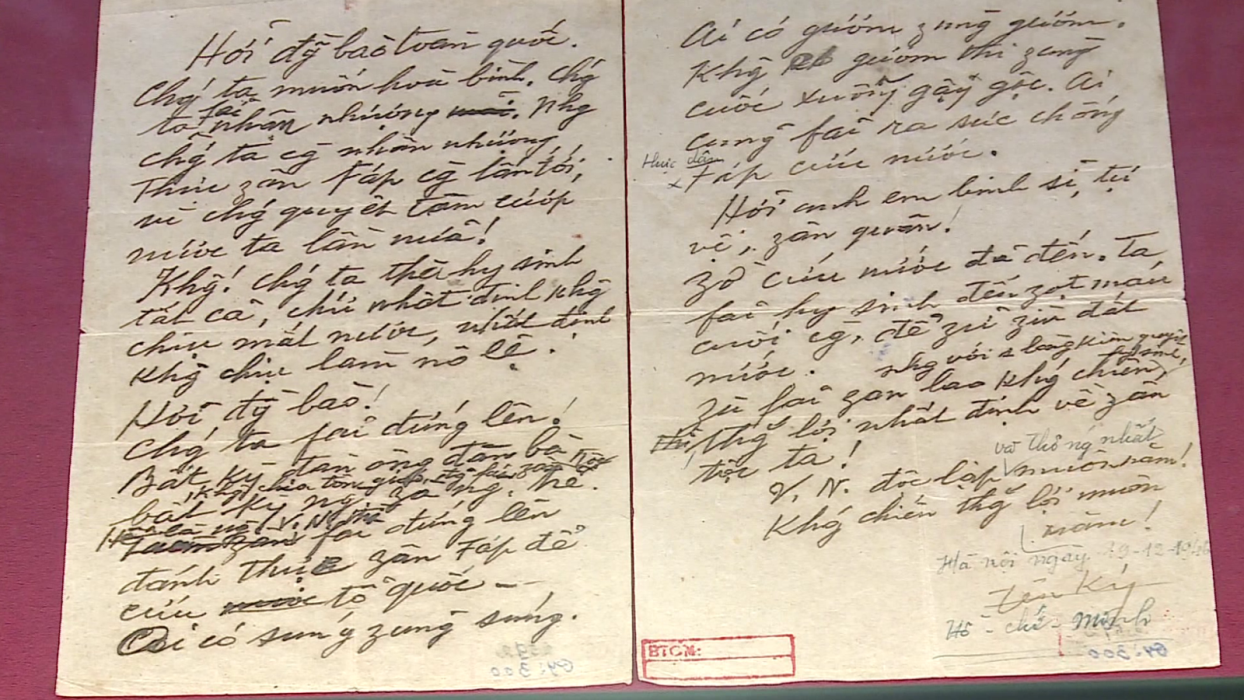 Hỡi đg̃ bào toàn quốc.
Chǵ ta muốn hoà bình, chǵ
ta fải nhân nhượng. Nhg
chǵ ta cg̃ nhân nhượng,
thực zân Fáp cg̃ lấn tới,
vì chǵ quyết tâm cướp
nước ta lần nữa!
Khg̃! chǵ ta thà hy sinh
tất cả, chứ nhất định khg̃
chịu mất nước, nhất định
khg̃ chịu làm nô lệ.
Hỡi đg̃ bào!
Chǵ ta fải đứng lên!
Bất kỳ đàn ông đàn bà,
bất kỳ ng̀ zà ng. trẻ.
Hễ là ng̀ V.N. thì
fải đứng lên
đánh thực zân Fáp để
cứu tổ quốc -
Ai có súng zùng súng.
Ai có gươm zùng gươm.
Khg̃ gươm thì zùng
cuốc xuổng gậy gộc. Ai
cũng fải ra sức chống
thực dân
x Fáp cứu nước.
Hỡi anh em binh sĩ, tự
vệ, zân quân!
Zờ cứu nước đã đến. Ta
fải hy sinh đến zọt máu
cuối cg̀, để zữ zìn đất
nước.
Zù fải zan lao khǵ chiến,
nhg với 1 lòng kiên quyết
hy sinh,
thǵ lợi nhất định về zân
tộc ta!
và thống nhất
V.N. độc lập muôn năm!
Khǵ chiến thǵ lợi muôn
năm!
Hà nội ngày 19-12-1946
Hồ-chí-Minh
BTCM: